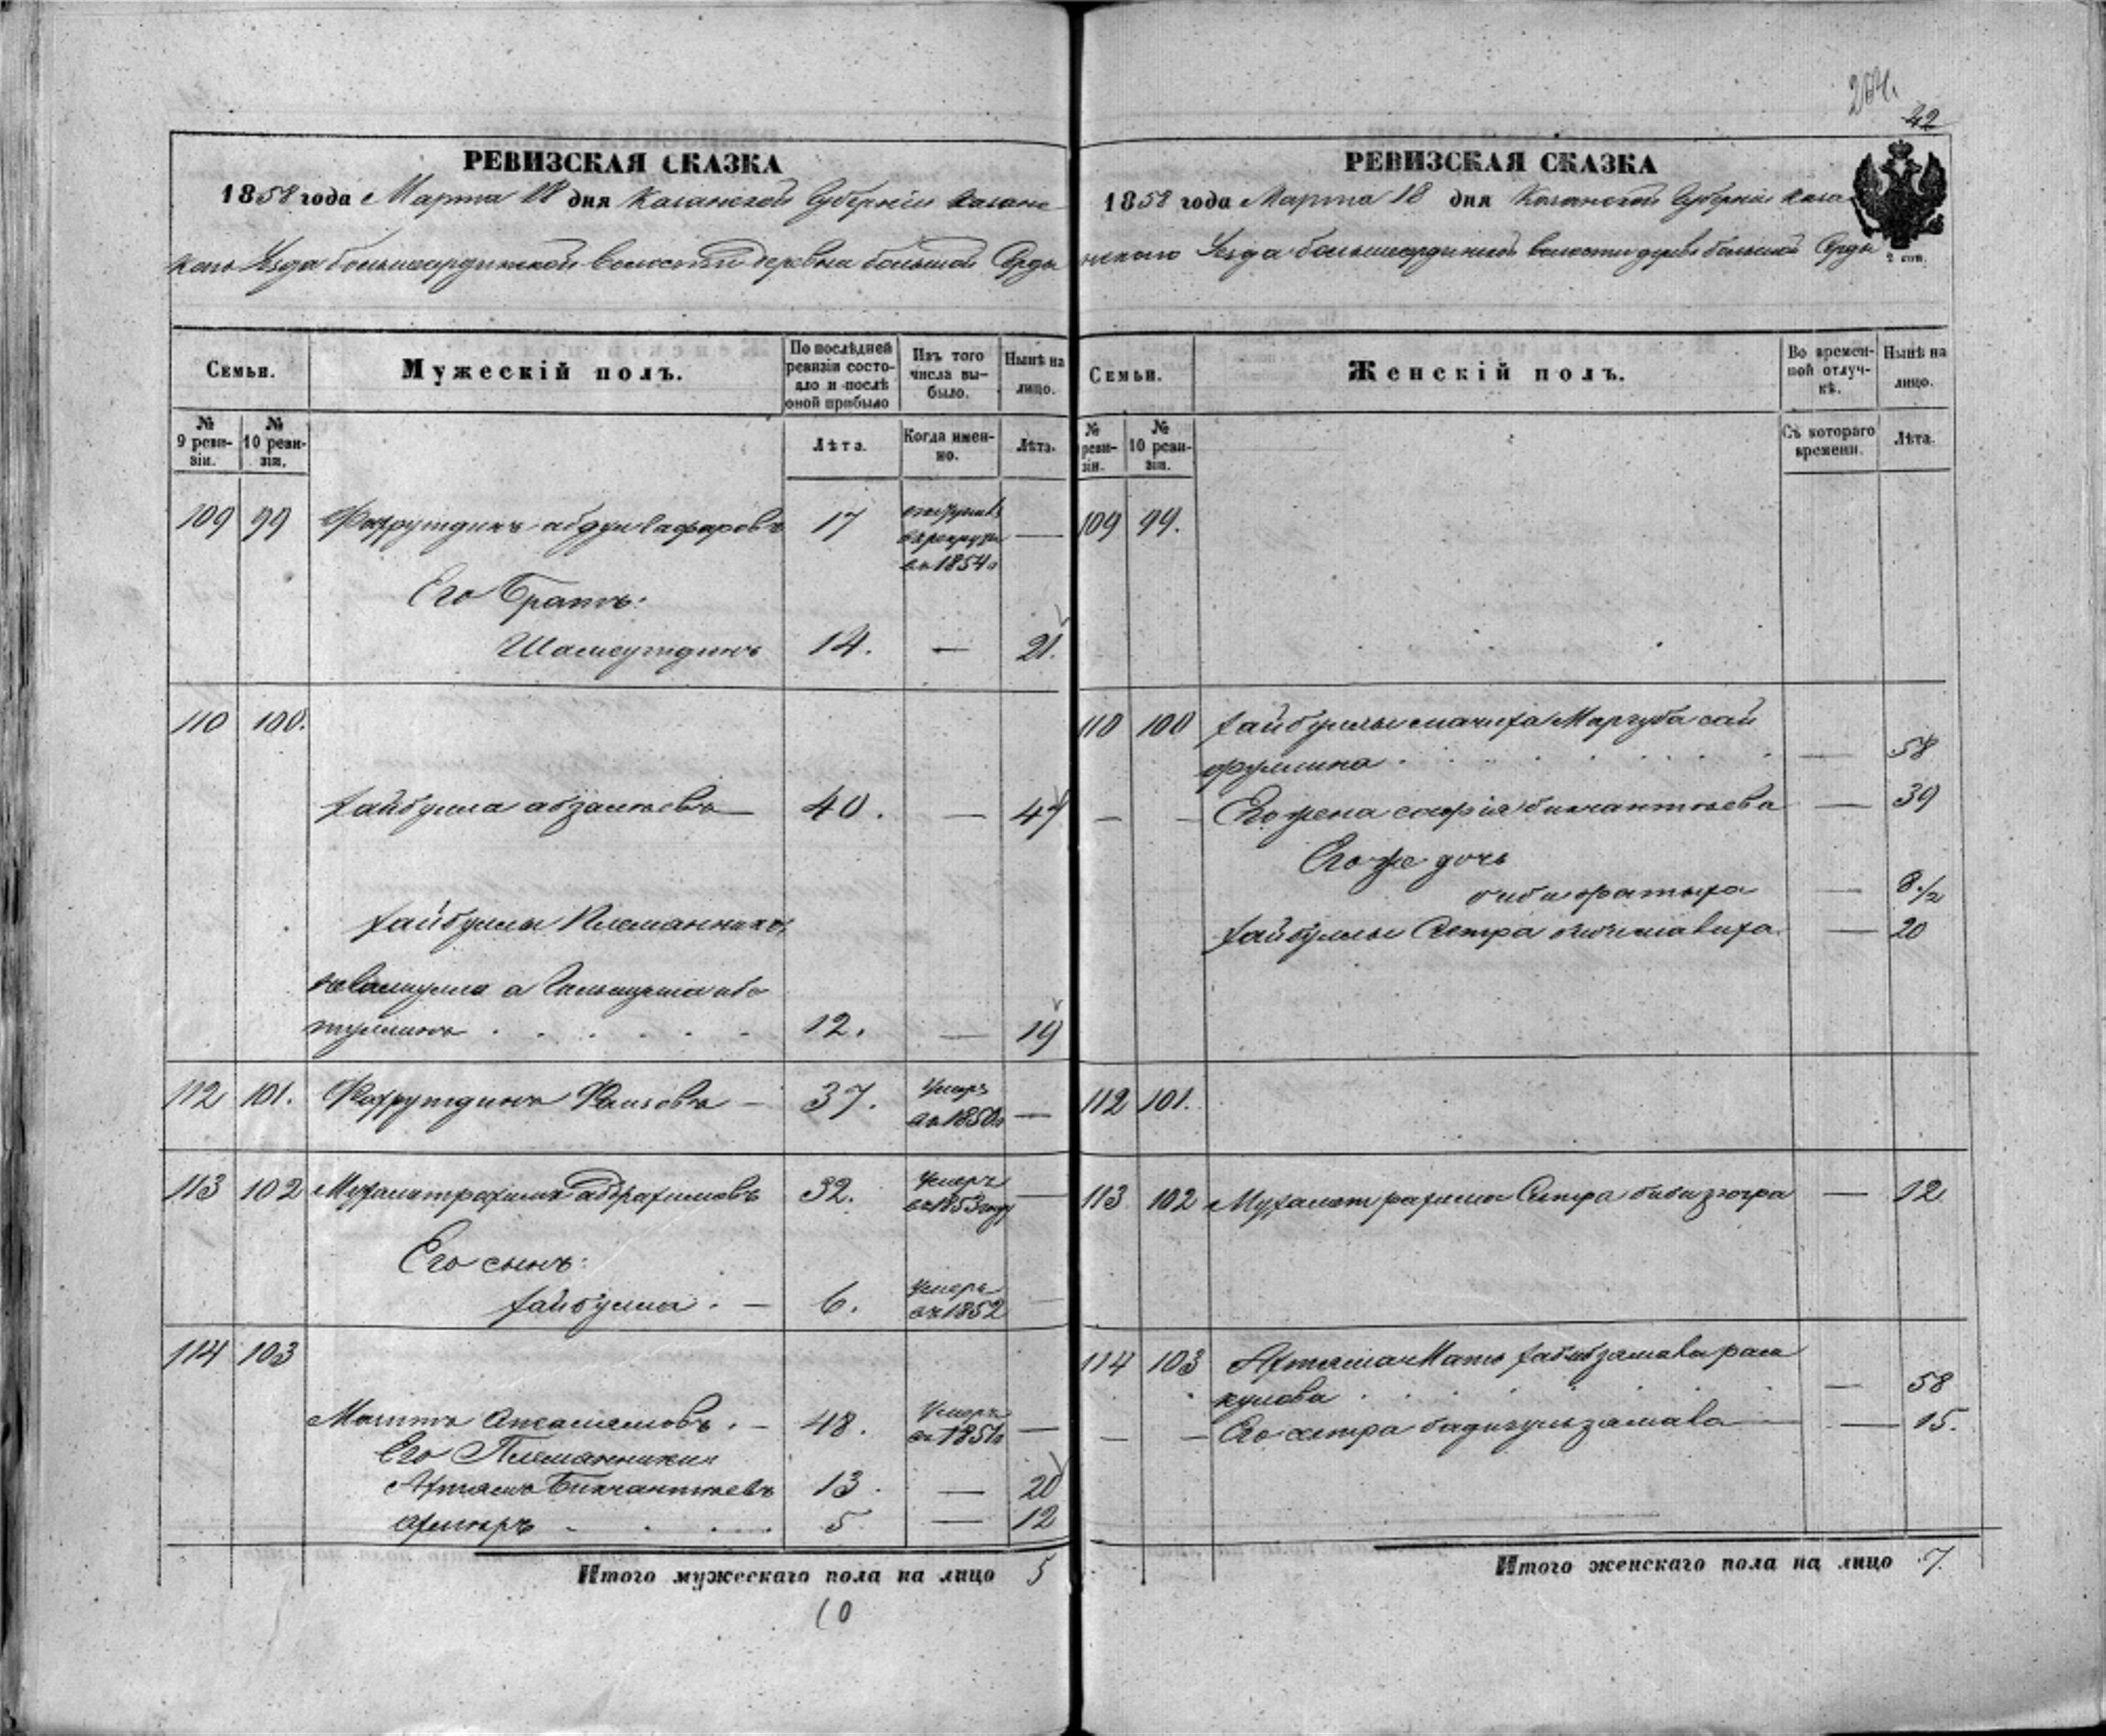 264.
42
РЕВИЗСКАЯ СКАЗКА
1858 года Марта 18 дня Казанской Губернiи Казанс
каго Уезда большеардинской волости деревни большой Арды
Семьи.
Мужескiй полъ.
По послѣдней ревизiи состояло и послѣ оной прибыло
Изъ того числа выбыло.
Нынѣ на лицо.
№ 9 ревизiи.
№ 10 ревизiи.
Лѣта.
Когда именно.
Лѣта.
109 99 Фахрутдинъ абдулвафаровъ 17 въ рекруты въ 1854 —
Его Братъ:
Шамсутдинъ 14. — 21.
110 100.
хайбулла абзалтовъ 40. — 47
хайбуллы Племянникъ
12. — 19
112 101. Фахрутдинъ Фаизовъ — 37. Умеръ въ 1850 —
113 102 Мухаметрахимъ абдрахимовъ 32. Умеръ въ 1853 году —
Его сынъ:
хайбулла. — 6. Умеръ въ 1852 —
114 103
48. Умеръ въ 1851 —
Его Племянники
Ахтямъ Бикчантаевъ 13. — 20
5 — 12
Итого мужескаго пола на лицо 5
10
РЕВИЗСКАЯ СКАЗКА
1858 года Марта 18 дня Казанской Губернiи Каза
нскаго Уезда большеардинской волости дерев большой Арды
2 коп.
Семьи.
Женскiй полъ.
Во временной отлучкѣ.
Нынѣ на лицо.
№ ревизiи.
№ 10 ревизiи.
Съ котораго времени.
Лѣта.
109 99.
110 100 хайбуллы мачиха Маргуба сай
фуллина — 58
Его жена сафiя бикчантаева — 39
Его же дочь
биби фатыха — 8 1/2
хайбуллы Сестра — 20
112 101.
113 102 Мухаметрахима Сестра биби зюгра — 12
114 103 Ахтяма Мать хабибзямала
кулова — 58
Его сестра бадигульзямала — 15.
Итого женскаго пола на лицо 7.